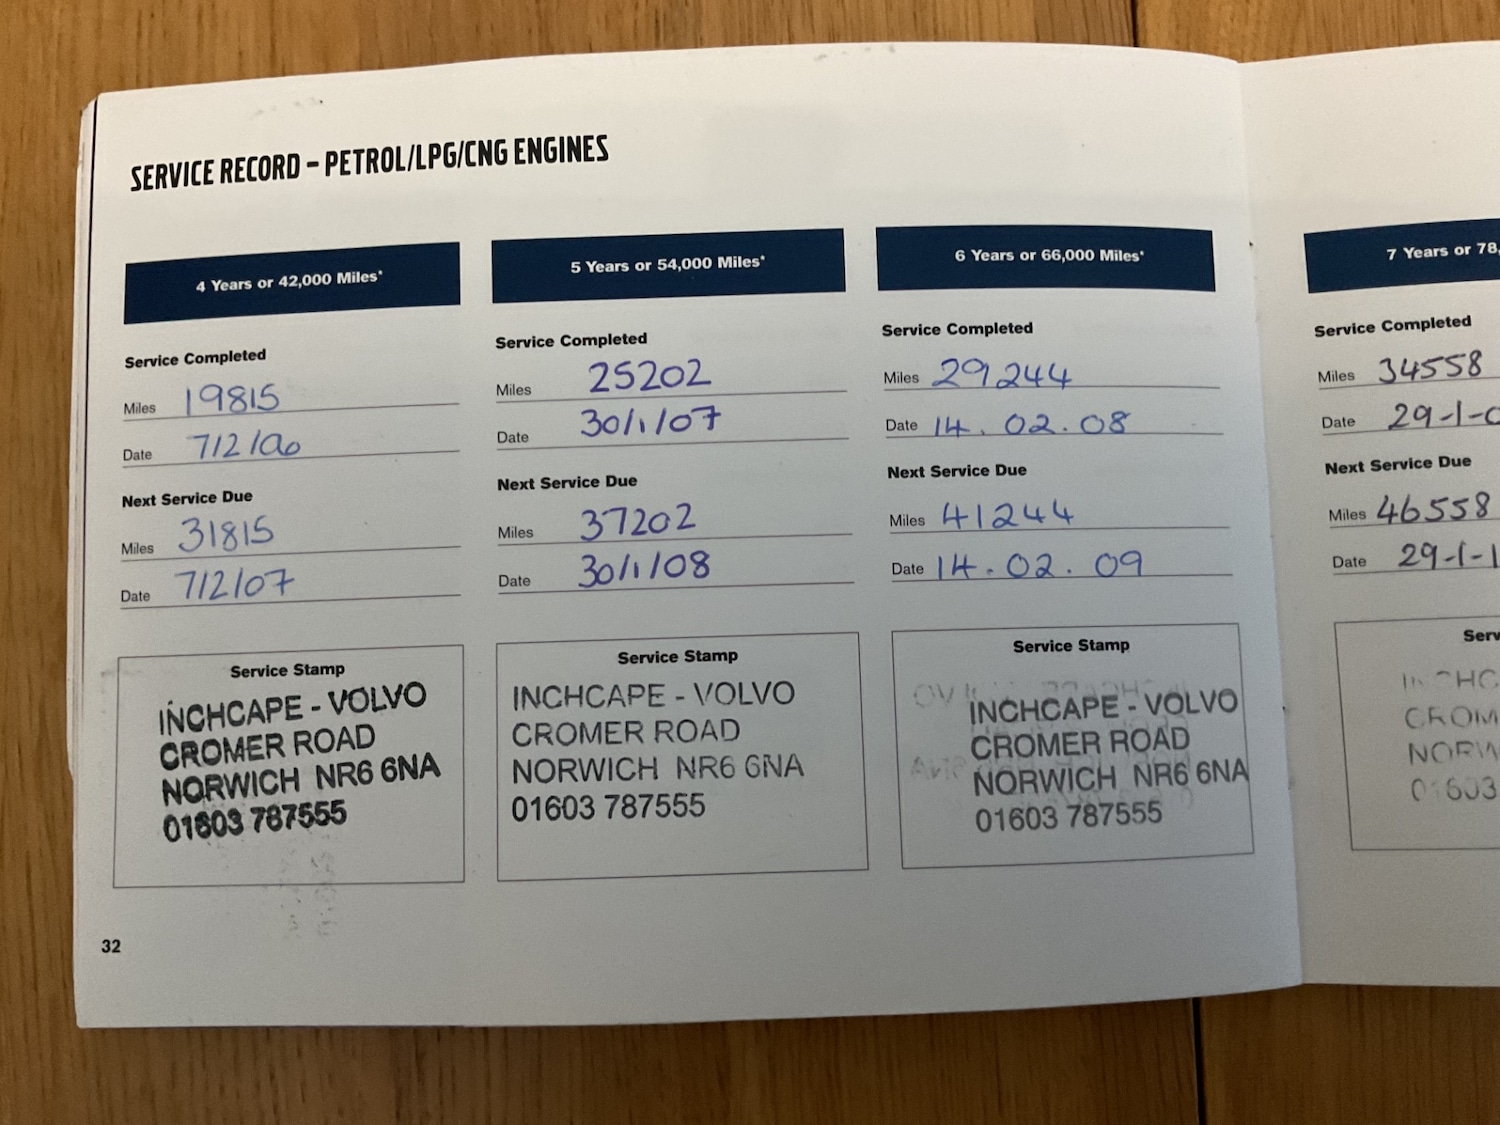 SERVICE RECORD – PETROL/LPG/CNG ENGINES
4 Years or 42,000 Miles*
Service Completed
Miles 19815
Date 7/2/06
Next Service Due
Miles 31815
Date 7/2/07
Service Stamp
INCHCAPE - VOLVO
CROMER ROAD
NORWICH NR6 6NA
01603 787555
5 Years or 54,000 Miles*
Service Completed
Miles 25202
Date 30/1/07
Next Service Due
Miles 37202
Date 30/1/08
Service Stamp
INCHCAPE - VOLVO
CROMER ROAD
NORWICH NR6 6NA
01603 787555
6 Years or 66,000 Miles*
Service Completed
Miles 29244
Date 14.02.08
Next Service Due
Miles 41244
Date 14.02.09
Service Stamp
INCHCAPE - VOLVO
CROMER ROAD
NORWICH NR6 6NA
01603 787555
32
7 Years or 78,
Service Completed
Miles 34558
Date 29-1-0
Next Service Due
Miles 46558
Date 29-1-1
Serv
CROM
NORW
01603